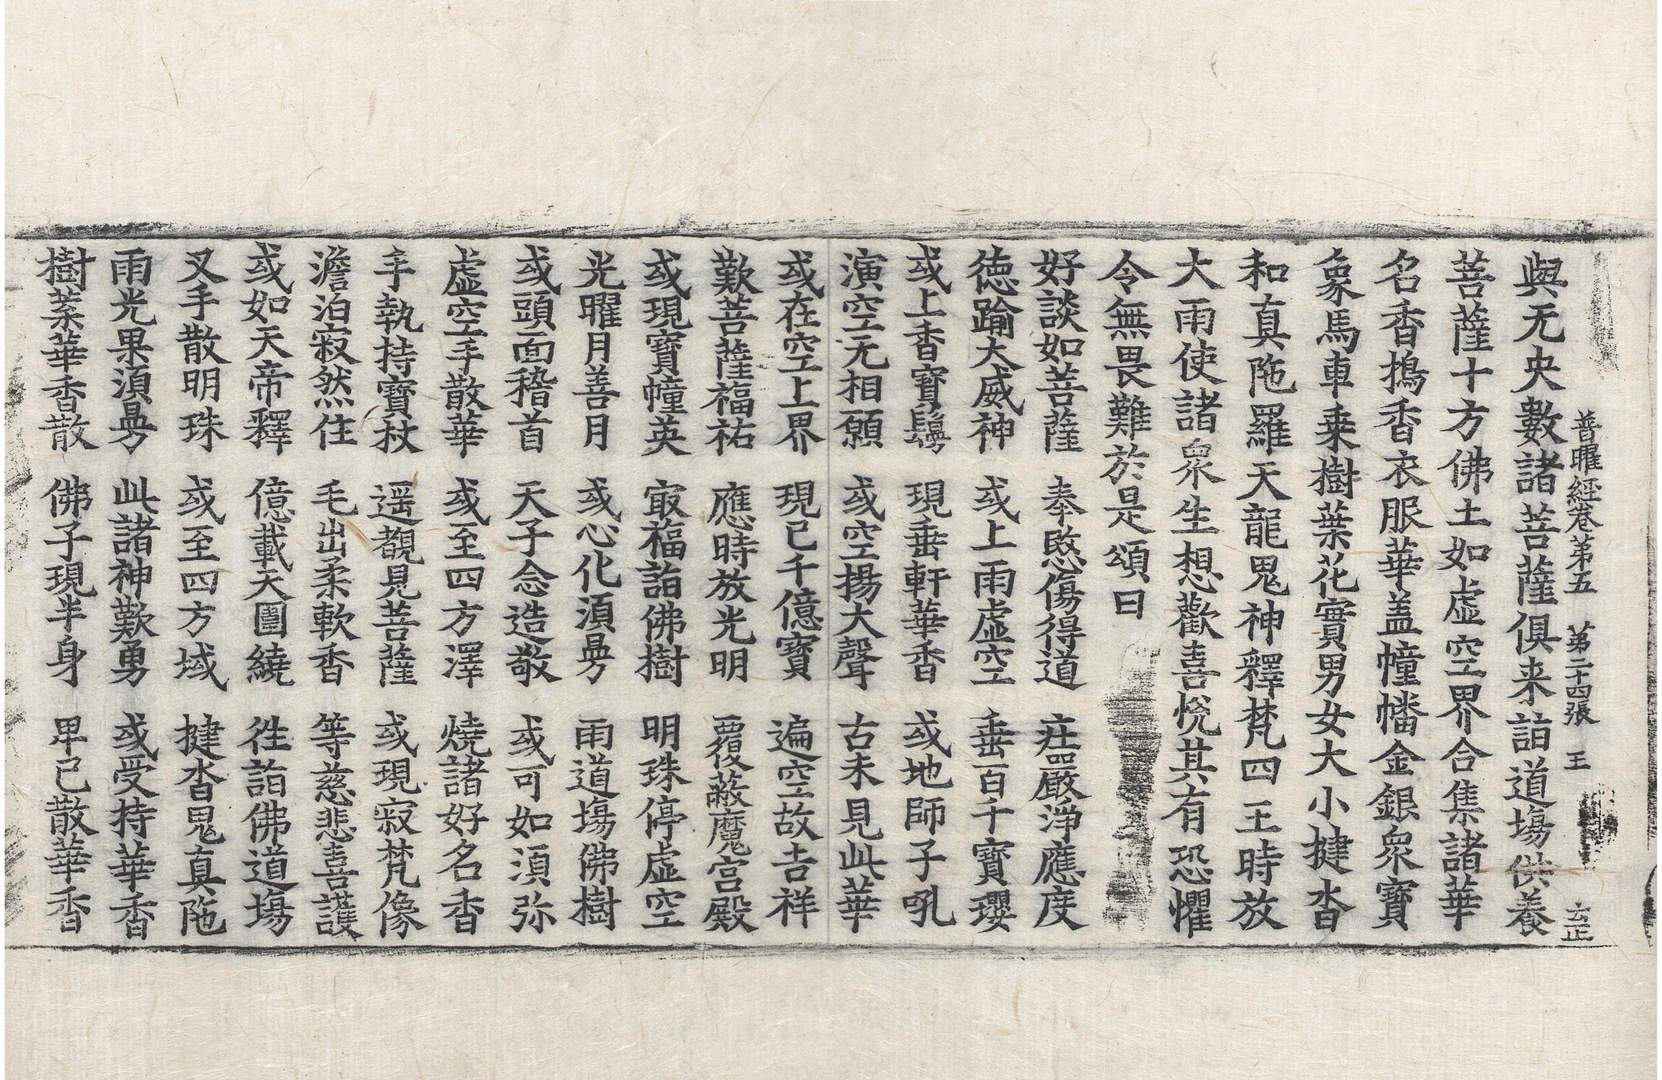 普曜經卷苐五 苐二十四張 王 玄正
與无央數諸菩薩俱来詣道場供養
菩薩十方佛土如虛空界合集諸華
名香擣香衣服華盖幢幡金銀衆寶
象馬車乗樹葉花實男女大小揵沓
和真陁羅天龍鬼神釋梵四王時放
大雨使諸衆生想歡喜悅其有恐懼
令無畏難於是頌曰
好談如菩薩 奉愍傷得道 莊嚴淨應度
德踰大威神 或上雨虛空 垂百千寶瓔
或上香寶鬘 現垂軒華香 或地師子吼
演空无相願 或空揚大聲 古未見此華
或在空上界 現已千億寶 遍空故吉祥
歎菩薩福祐 應時放光明 覆蔽魔宮殿
或現寶幢英 㝡福詣佛樹 明珠停虛空
光曜月善月 或心化湏㬅 雨道場佛樹
或頭面稽首 天子念造敬 或可如湏弥
虛空手散華 或至四方澤 燒諸好名香
手執持寶杖 遥覩見菩薩 或現寂梵像
澹泊寂然住 毛出柔軟香 等慈悲喜護
或如天帝釋 億載天圍繞 徃詣佛道場
叉手散明珠 或至四方域 揵沓鬼真陁
雨光果湏㬅 此諸神歎勇 或受持華香
樹葉華香散 佛子現半身 卑已散華香